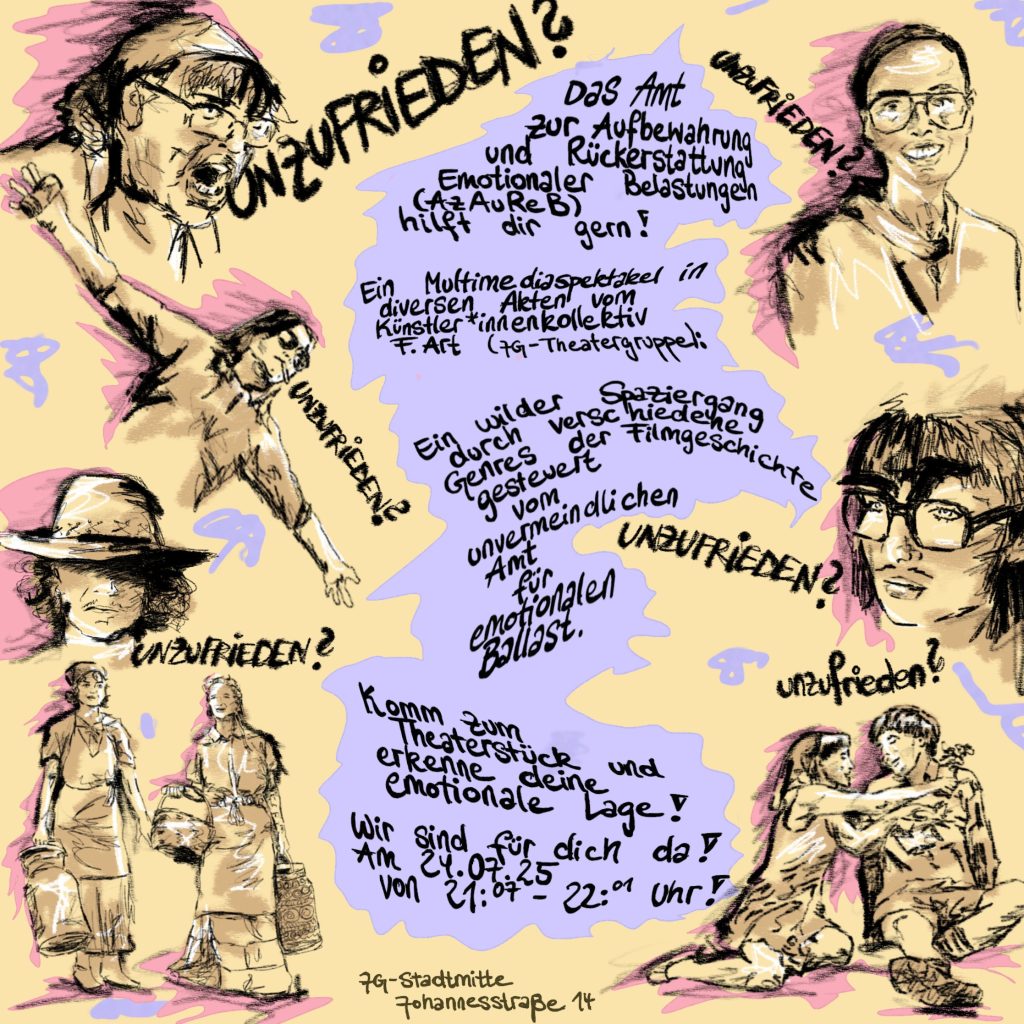 UNZUFRIEDEN?
UNZUFRIEDEN?
Das Amt
zur Aufbewahrung
und Rückerstattung
Emotionaler Belastungen
(AzAuReB)
hilft dir gern!
Ein Multimediaspektakel in
diversen Akten vom
Künstler*innenkollektiv
F. Art (7G-Theatergruppe):
UNZUFRIEDEN?
Ein wilder Spaziergang
durch verschiedene
Genres der Filmgeschichte
gestewert
vom
unvermeindlichen
Amt
für
emotionalen
Ballast.
UNZUFRIEDEN?
UNZUFRIEDEN?
unzufrieden?
Komm zum
Theaterstück und
erkenne deine
emotionale Lage!
Wir sind für dich da!
Am 24.07.25
von 21:07 - 22:01 Uhr!
7G-Stadtmitte
Johannesstraße 14